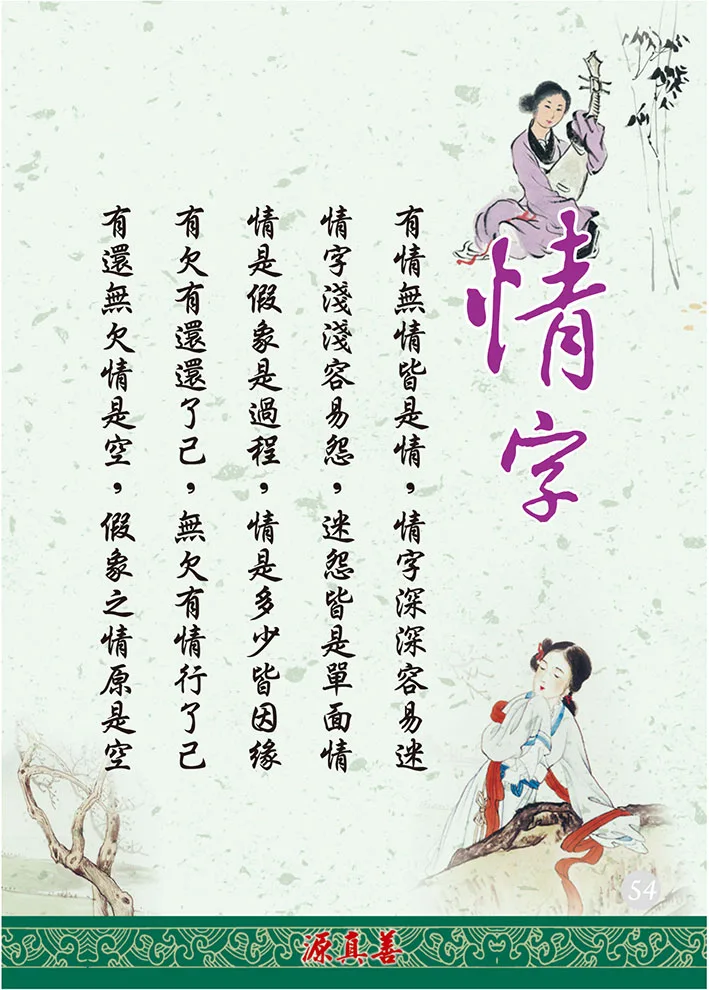 情字
有情無情皆是情，情字深深容易迷
情字淺淺容易怨，迷怨皆是單面情
情是假象是過程，情是多少皆因缘
有欠有還還了己，無欠有情行了己
有還無欠情是空，假象之情原是空
54
源真善